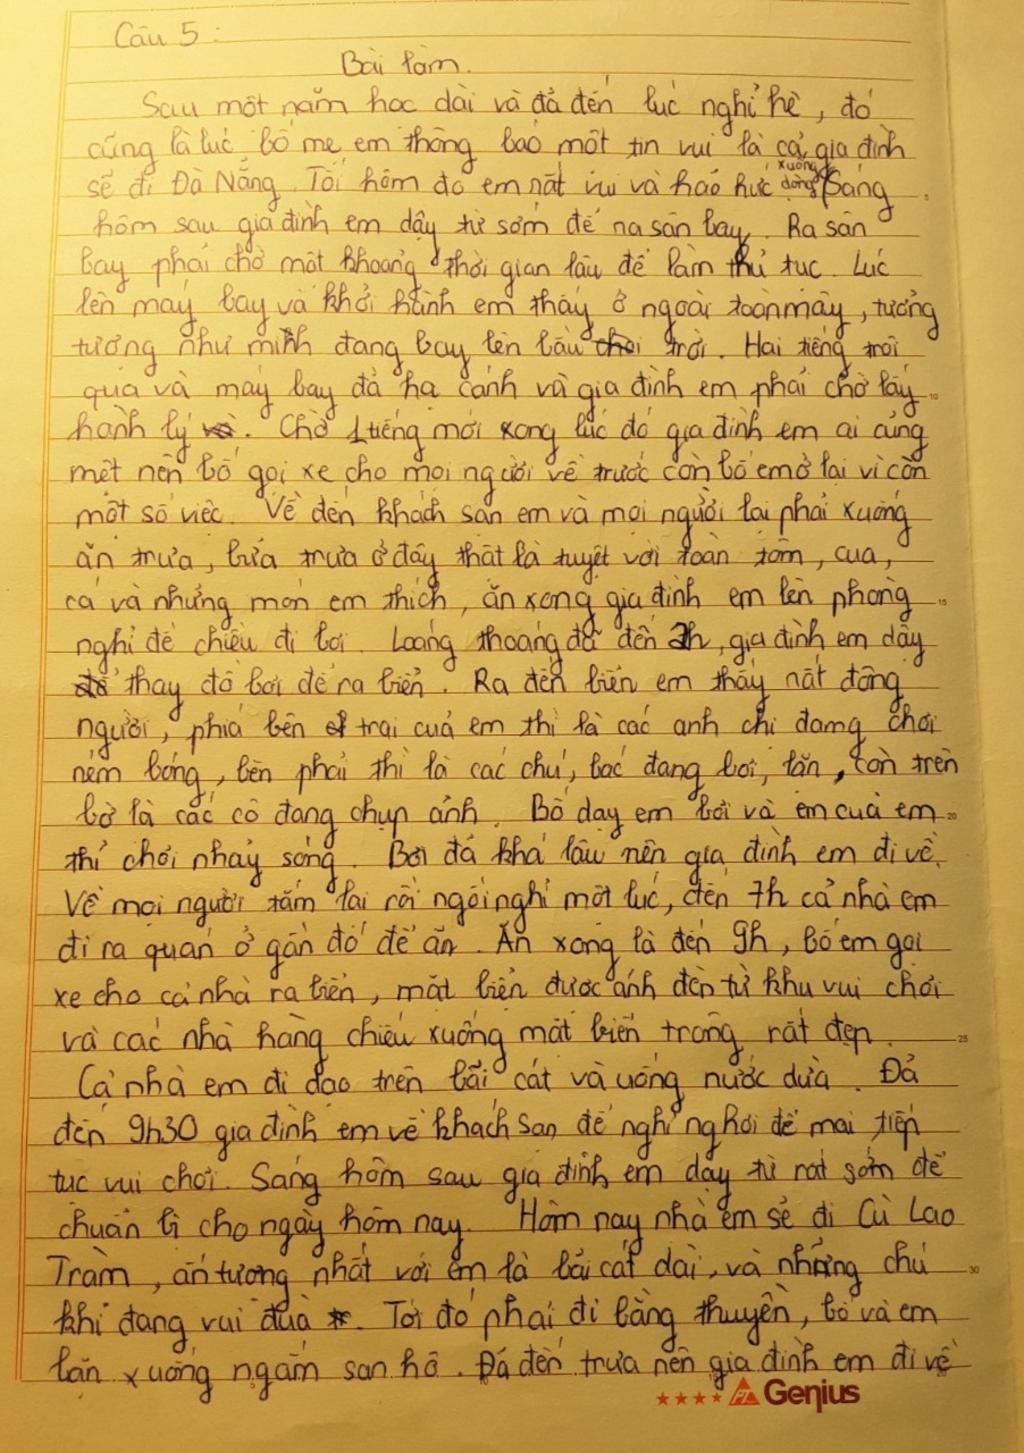 Câu 5:
Bài làm.
Sau một năm học dài và đã đến lúc nghỉ hè, đó
cũng là lúc bố mẹ em thông báo một tin vui là cả gia đình
sẽ đi Đà Nẵng. Tối hôm đó em nất vui và háo hức xuống dòng Sáng
hôm sau gia đình em dậy từ sớm để na sân bay. Ra sân
bay phải chờ một khoảng thời gian lâu để làm thủ tục. Lúc
lên máy bay và khởi hành em thấy ở ngoài toàn mây, tưởng
tượng như mình đang bay lên bầu trời. Hai tiếng trôi
qua và máy bay đã hạ cánh và gia đình em phải chờ lấy
hành lý. Chờ 1 tiếng mới xong lúc đó gia đình em ai cũng
mệt nên bố gọi xe cho mọi người về trước còn bố em ở lại vì còn
một số việc. Về đến khách sạn em và mọi người lại phải xuống
ăn trưa, bữa trưa ở đây thật là tuyệt vời toàn tôm, cua,
cá và những món em thích, ăn xong gia đình em lên phòng
nghỉ để chiều đi bơi. Loáng thoáng đã đến 2h, gia đình em dậy
thay đồ bơi để ra biển. Ra đến biển em thấy nất đông
người, phía bên trái của em thì là các anh chị đang chơi
ném bóng, bên phải thì là các chú, bác đang bơi, lặn, còn trên
bờ là các cô đang chụp ảnh. Bố dạy em bơi và em của em
thì chơi nhảy sóng. Bơi đã khá lâu nên gia đình em đi về.
Về mọi người tắm lại rồi ngồi nghỉ một lúc, đến 7h cả nhà em
đi ra quán ở gần đó để ăn. Ăn xong là đến 9h, bố em gọi
xe cho cả nhà ra biển, mặt biển được ánh đèn từ khu vui chơi
và các nhà hàng chiếu xuống mặt biển trông rất đẹp.
Cả nhà em đi dạo trên bãi cát và uống nước dừa. Đã
đến 9h30 gia đình em về khách sạn để nghỉ ngơi để mai tiếp
tục vui chơi. Sáng hôm sau gia đình em dậy từ rất sớm để
chuẩn bị cho ngày hôm nay. Hôm nay nhà em sẽ đi Cù Lao
Tràm, ấn tượng nhất với em là bãi cát dài, và những chú
khỉ đang vui đùa. Tới đó phải đi bằng thuyền, bố và em
lặn xuống ngắm san hô. Đã đến trưa nên gia đình em đi về
PT Genius